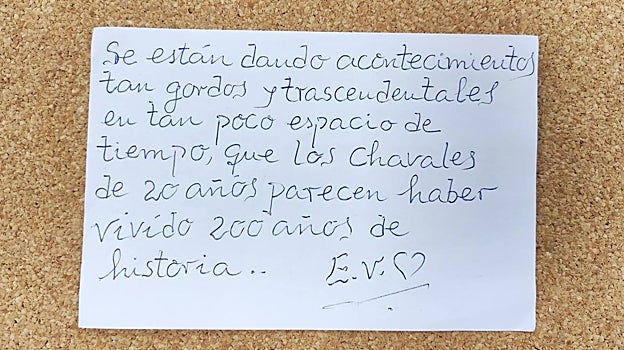 Se están dando acontecimientos
tan gordos y trascendentales
en tan poco espacio de
tiempo, que los chavales
de 20 años parecen haber
vivido 200 años de
historia.. E.V.♡